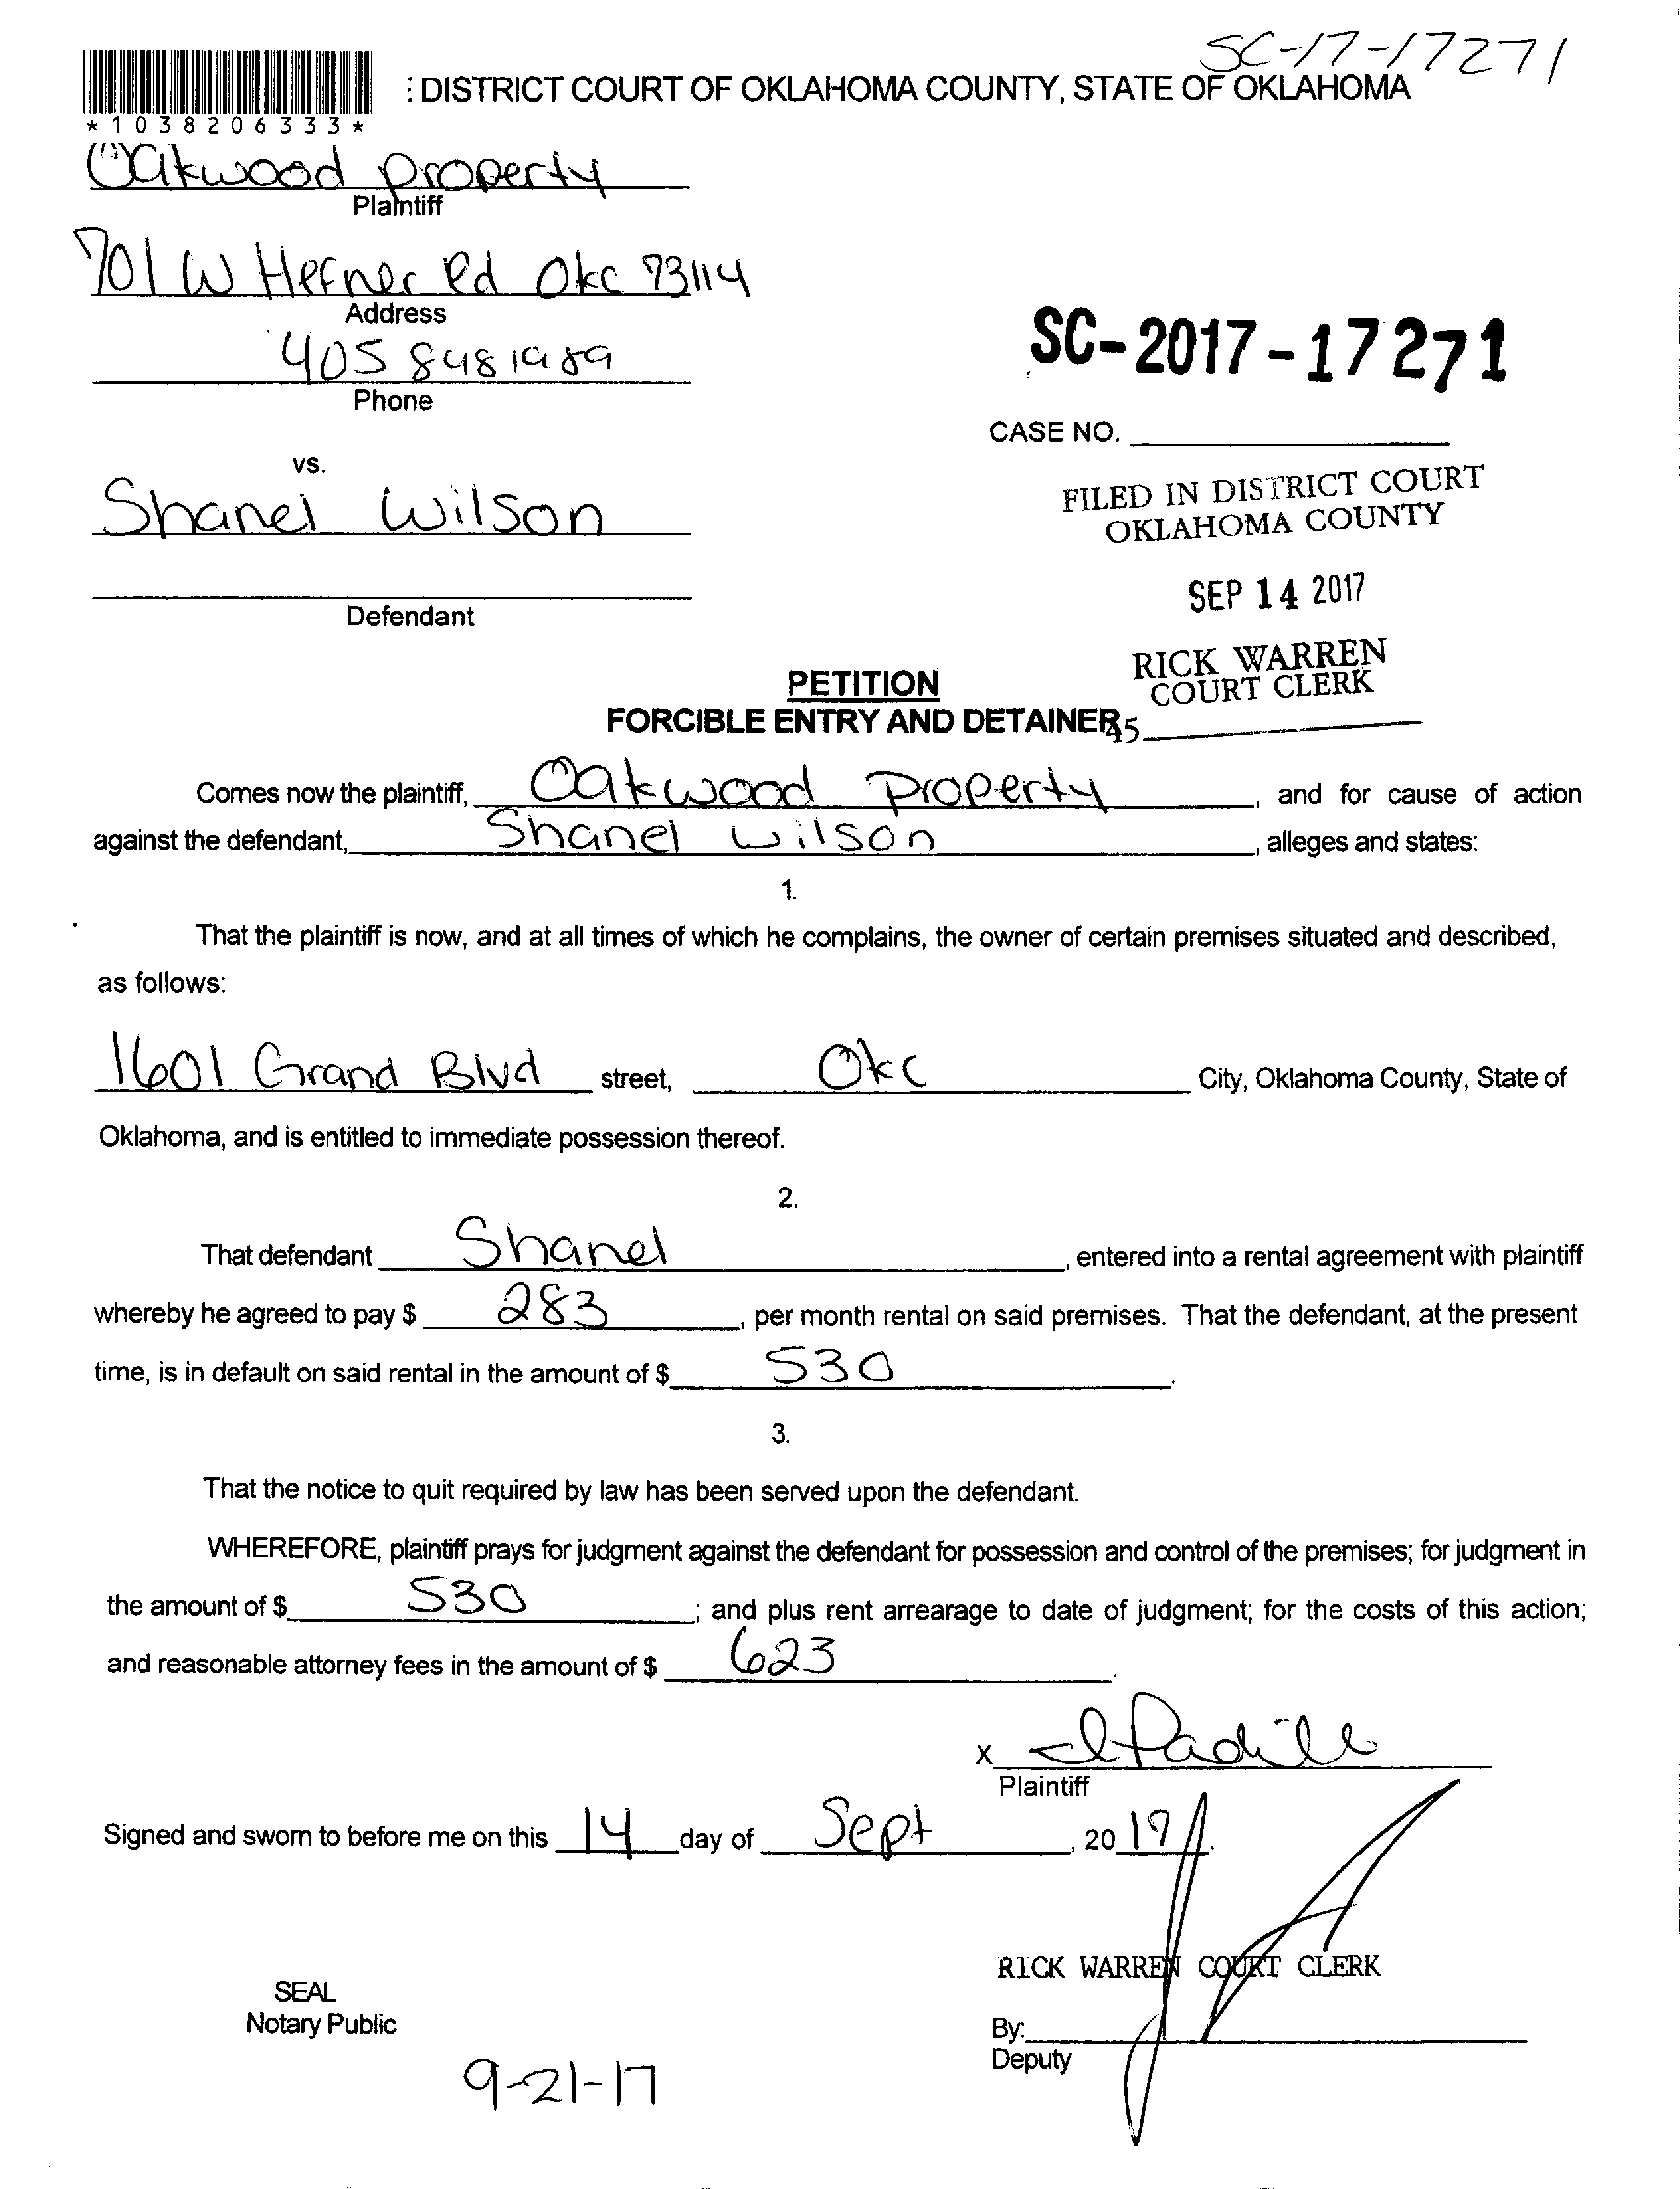 SC-17-17271
: DISTRICT COURT OF OKLAHOMA COUNTY, STATE OF OKLAHOMA
* 1 0 3 8 2 0 6 3 3 3 *
Oakwood property
Plaintiff
701 W Hefner Rd Okc 73114
Address
405 848 1989
Phone
SC-2017-17271
CASE NO.
vs.
Shanel Wilson
FILED IN DISTRICT COURT
OKLAHOMA COUNTY
SEP 14 2017
Defendant
RICK WARREN
COURT CLERK
PETITION
FORCIBLE ENTRY AND DETAINER
45
Comes now the plaintiff, Oakwood Property, and for cause of action
against the defendant, Shanel Wilson, alleges and states:
1.
That the plaintiff is now, and at all times of which he complains, the owner of certain premises situated and described,
as follows:
1601 Grand Blvd street, Okc City, Oklahoma County, State of
Oklahoma, and is entitled to immediate possession thereof.
2.
That defendant Shanel, entered into a rental agreement with plaintiff
whereby he agreed to pay $ 283, per month rental on said premises. That the defendant, at the present
time, is in default on said rental in the amount of $ 530.
3.
That the notice to quit required by law has been served upon the defendant.
WHEREFORE, plaintiff prays for judgment against the defendant for possession and control of the premises; for judgment in
the amount of $ 530; and plus rent arrearage to date of judgment; for the costs of this action;
and reasonable attorney fees in the amount of $ 623.
X Padilla
Plaintiff
Signed and sworn to before me on this 14 day of Sept, 20 17.
RICK WARREN COURT CLERK
SEAL
Notary Public
By:
Deputy
9-21-17